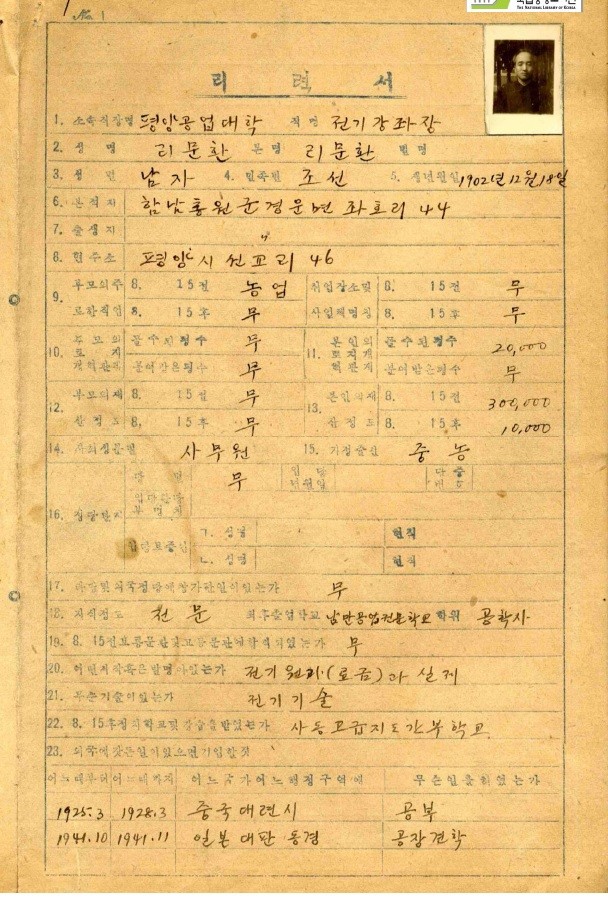 No. 1
THE NATIONAL LIBRARY OF KOREA
리 력 서
1. 소속직장명 평양공업대학 직명 전기강좌장
2. 성 명 리문환 본명 리문환 별명
3. 성별 남자 4. 민족별 조선 5. 생년월일 1902년 12월 18일
6. 본적지 함남홍원군경운면 좌호리 44
7. 출생지 〃
8. 현주소 평양시 선교리 46
9. 부모의주 8. 15전 농업 취업장소및 8. 15전 무
로한직업 8. 15후 무 사업체명칭 8. 15후 무
10. 부모의 몰수된평수 무 11. 본인의 몰수된평수 20,000
토지개혁관계 분여받은평수 무 토지개혁관계 분여받은평수 무
12. 부모의재 8. 15전 무 13. 본인의재 8. 15전 300,000
산정도 8. 15후 무 산정도 8. 15후 10,000
14. 사회성분별 사무원 15. 가정출신 중농
16. 정당관계 당명 무 입당년월일 당증번호
입당보증인 ㄱ. 성명 현직
ㄴ. 성명 현직
17. 외국정당에참가한일이있는가 무
18. 지식정도 전문 최후졸업학교 남만공업전문학교 학위 공학사
19. 8. 15전 무
20. 어떤저작혹은발명이있는가 전기원리(로금)과 실제
21. 무슨기술이있는가 전기기술
22. 8. 15후정치학교및강습을받았는가 사동고급지도간부학교
23. 외국에갔든일이있으면기입할것
어느때부터어느때까지 어느국가어느행정구역에 무슨일을하였는가
1925.3 1928.3 중국대련시 공부
1941.10 1941.11 일본 대판 동경 공장견학